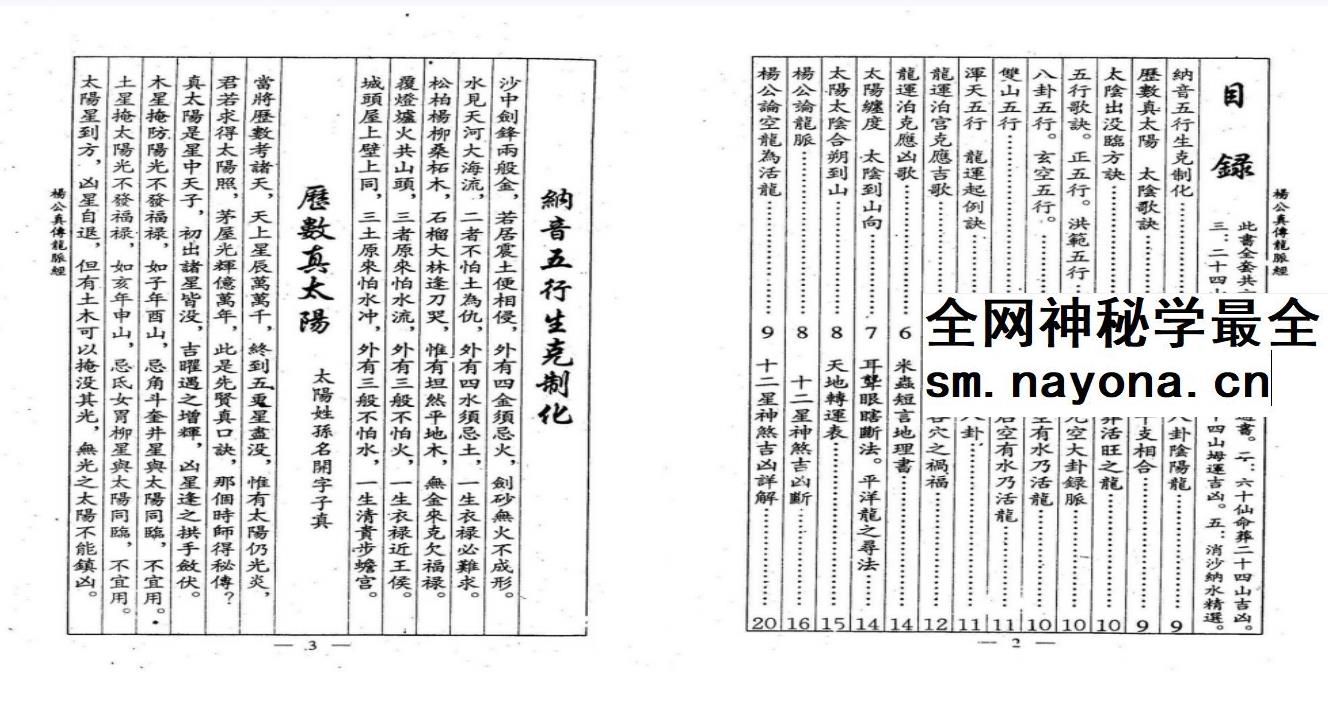 楊公真傳龍脈經
目錄
此書全套共
三、二十四山
遁書。二、六十仙命葬二十四山吉凶。
十四山坶運吉凶。五、消沙納水精選。
納音五行生克制化
歷數真太陽 太陰歌訣
太陰出没臨方訣
五行歌訣。正五行。洪範五行
八卦五行。玄空五行。
雙山五行
渾天五行 龍運起例訣
龍運泊宫克應吉歌
龍運泊克應凶歌 6
太陽纏度 太陰到山向 7
太陽太陰合朔到山 8
楊公論龍脈 8
楊公論空龍為活龍 9
八卦陰陽龍 9
干支相合 9
葬活旺之龍 10
元空大卦録脈 10
坐有水乃活龍 10
后空有水乃活龍 11
八卦 11
穴之禍福 12
米蟲短言地理書 14
耳聾眼瞎斷法。平洋龍之尋法 14
天地轉運表 15
十二星神煞吉凶斷 16
十二星神煞吉凶詳解 20
— 2 —
全网神秘学最全
sm.nayona.cn
納音五行生克制化
沙中劍鋒兩般金，若居震土便相侵，外有四金須忌火，劍砂無火不成形。
水見天河大海流，二者不怕土為仇，外有四水須忌土，一生衣禄必難求。
松柏楊柳桑柘木，石榴大林逢刀哭，惟有坦然平地木，無金來克欠福禄。
覆燈爐火共山頭，三者原來怕水流，外有三般不怕火，一生衣禄近王侯。
城頭屋上壁上同，三土原來怕水冲，外有三般不怕水，一生清貴步蟾宫。
歷數真太陽 太陽姓孫名開字子真
當將歷數考諸天，天上星辰萬萬千，終到五更星盡没，惟有太陽仍光炎，
君若求得太陽照，茅屋光輝億萬年，此是先賢真口訣，那個時師得秘傳？
真太陽是星中天子，初出諸星皆没，吉曜遇之增輝，凶星逢之拱手斂伏。
木星掩防陽光不發福禄，如子年酉山，忌角斗奎井星與太陽同臨，不宜用。
土星掩太陽光不發福禄，如亥年申山，忌氐女胃柳星與太陽同臨，不宜用。
太陽星到方，凶星自退，但有土木可以掩没其光，無光之太陽不能鎮凶。
楊公真傳龍脈經
— 3 —